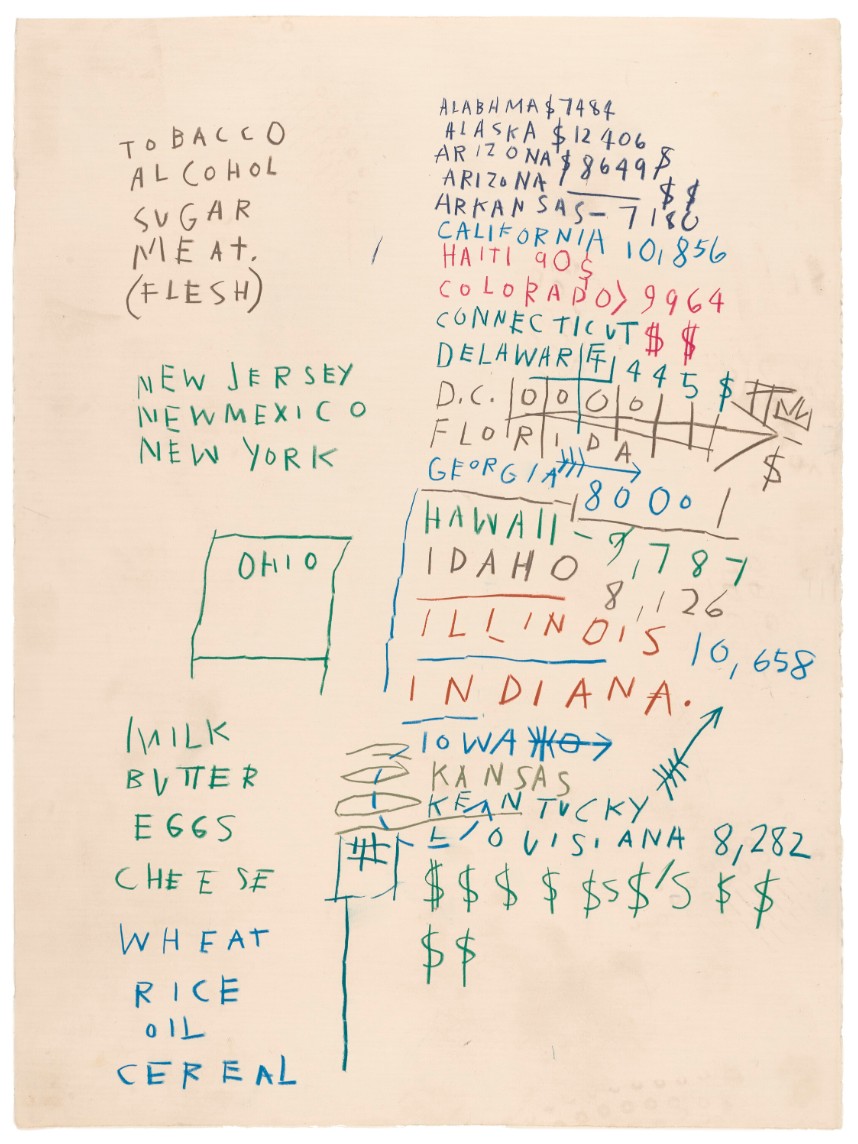 TOBACCO
ALCOHOL
SUGAR
MEAT.
(FLESH)
NEW JERSEY
NEW MEXICO
NEW YORK
OHIO
MILK
BUTTER
EGGS
CHEESE
WHEAT
RICE
OIL
CEREAL
ALABHMA $7484
ALASKA $12406
ARIZONA $8649 $
ARIZONA $$
ARKANSAS- 7180
CALIFORNIA 10,856
HAITI 90$
COLORADO> 9964
CONNECTICUT $ $
DELAWARE 445 $
D.C. 0000
FLORIDA $
GEORGIA 8000
HAWAII - 9,787
IDAHO 8,126
ILLINOIS 10,658
INDIANA.
IOWA
KANSAS
KEANTUCKY
L/OUISIANA 8,282
$ $ $ $ $S $'S $ $
$ $